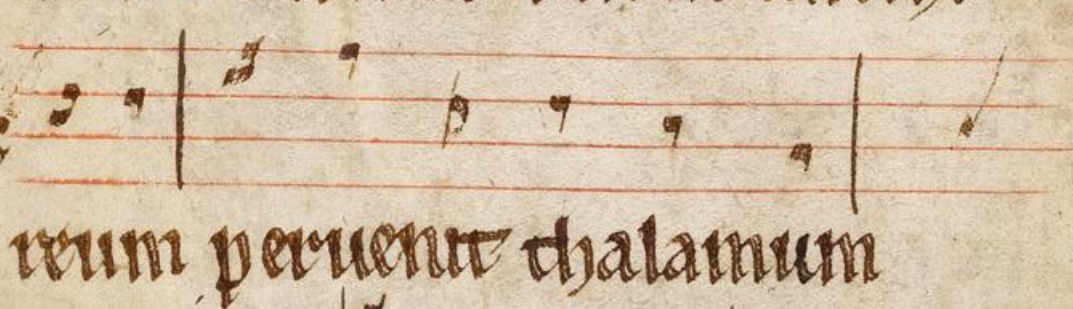 reum peruenit thalamum